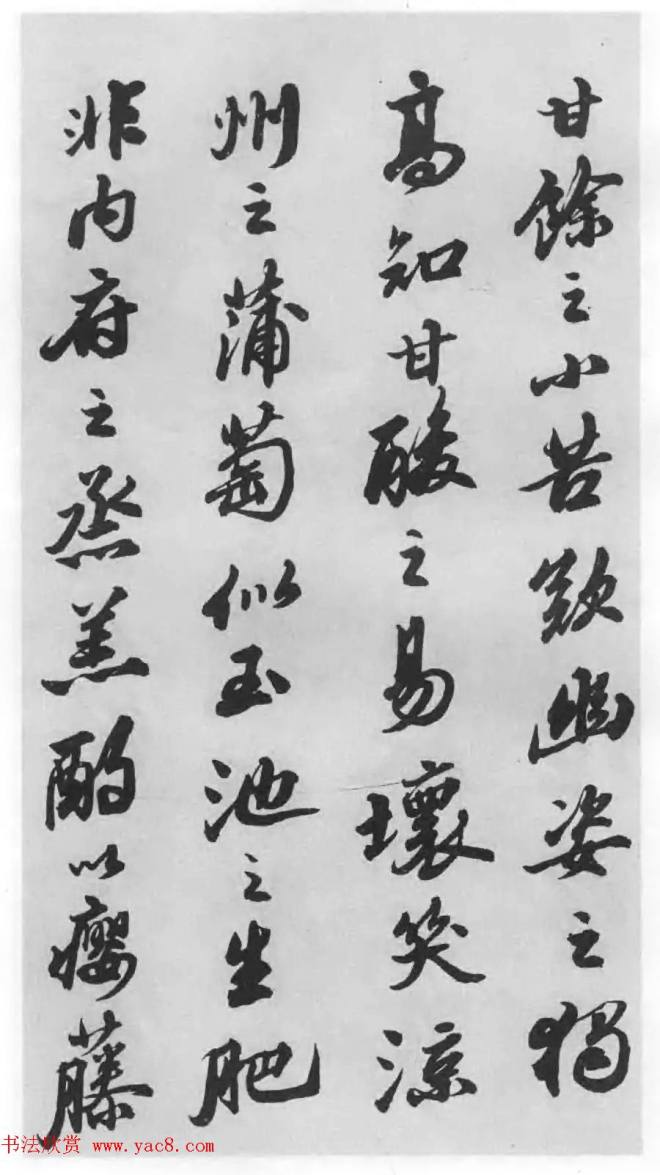 甘餘之小苦歎幽姿之獨
高知甘酸之易壞笑涼
州之蒲萄似玉池之生肥
非内府之烝羔酌以癭藤
书法欣赏 www.yac8.com